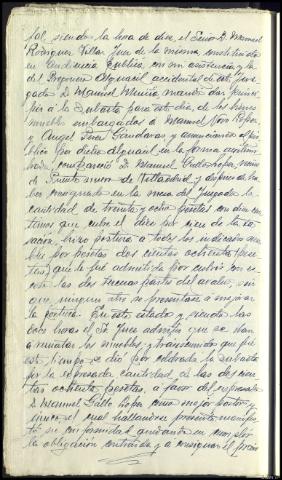 tal, siendo la hora de diez, el Señor D. Manuel
Rodriguez Villar Juez de la misma, constituido
en audiencia publica, con mi asistencia y la
del Alguacil accidental de este Juz-
gado D. Manuel Muiña, mandó dar princi-
pio á la subasta para este dia, de los bienes
muebles embargados a Manuel
y Angel Gandara y anunciandose al pu-
blico por dicho Alguacil en la forma
compareció D. Manuel Gallo Lopez, vecino
de de Valladrid y despues de ha-
ber consignado en la mesa del Juzgado la
cantidad de treinta y ocho pesetas con diez cen-
timos que cubre el diez por cien de la ta-
sacion, hizo postura a todos los indicados mue-
bles por pesetas doscientas ochenta pese-
tas, que le fué admitida por cubrir con ex-
ceso las dos terceras partes del avaluo, sin
que ninguno otro se presentase a mejorar
la postura. En este estado y siendo las
doce horas el Sr. Juez advirtió que se iban
a rematar los muebles, y transcurrido que fué
este tiempo se dió por celebrada la subasta
por la expresada cantidad de las doscien-
tas ochenta pesetas, a favor del expresado
D. Manuel Gallo Lopez como mejor postor y
unico el cual hallandose presente manifes-
tó su conformidad quedando en cumplir
la obligación contraida y a consignar el precio